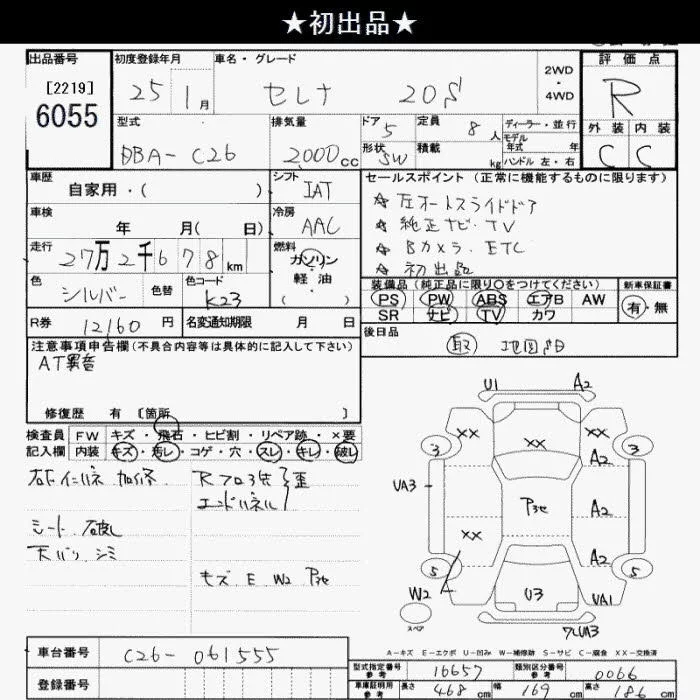 ★初出品★
出品番号 初度登録年月 車名・グレード 2WD・4WD 評価点
[2219]
6055
25 1月 セレナ 20S R
型式 排気量 ドア 定員 ディーラー・並行 外装 内装
DBA-C26 2000cc 5 8人 モデル年式 年 C C
形状 SW 積載 kg ハンドル 左・右
車歴 シフト セールスポイント (正常に機能するものに限ります)
自家用・( ) IAT
☆ 左オートスライドドア
車検 冷房 ☆ 純正ナビ・TV
年 月( 日) AAC ☆ Bカメラ. ETC
走行 燃料 ☆ 初出品
27万2千678km ガソリン 軽油
色 色替 色コード 装備品(純正品に限り○をつけてください) 新車保証書
シルバー K23 PS PW ABS エアB AW 有・無
SR ナビ TV カワ
R券 12160円 名変通知期限 月 日 後日品
注意事項申告欄(不具合内容等は具体的に記入して下さい) 取
AT異音
修復歴 有 [箇所 ]
検査員 FW キズ・飛石・ヒビ割・リペア跡・×要
記入欄 内装 キズ・汚レ・コゲ・穴・スレ・キレ・破レ
シート 破レ
天バリ シミ
Rフロア先 歪
エンドパネル
キズ E W2
U1 A2
3 XX XX A2 3
UA3 A2
XX A2
5 5
W2 U3 UA1
スペア
A-キズ E-エクボ U-凹み W-補修跡 S-サビ C-腐食 XX-交換済
車台番号 C26-061555
登録番号
型式指定番号 参考 16657 類別区分番号 参考 0066
車庫証明用 参考 長さ 468cm 幅 169cm 高さ 186cm